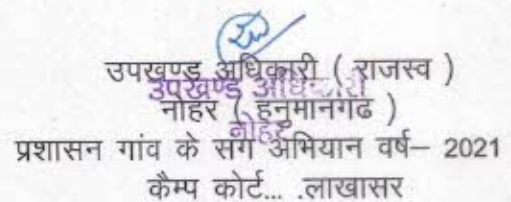 उपखण्ड अधिकारी ( राजस्व )
उपखण्ड अधिकारी
नोहर ( हनुमानगढ )
नोहर
प्रशासन गांव के संग अभियान वर्ष– 2021
कैम्प कोर्ट... .लाखासर